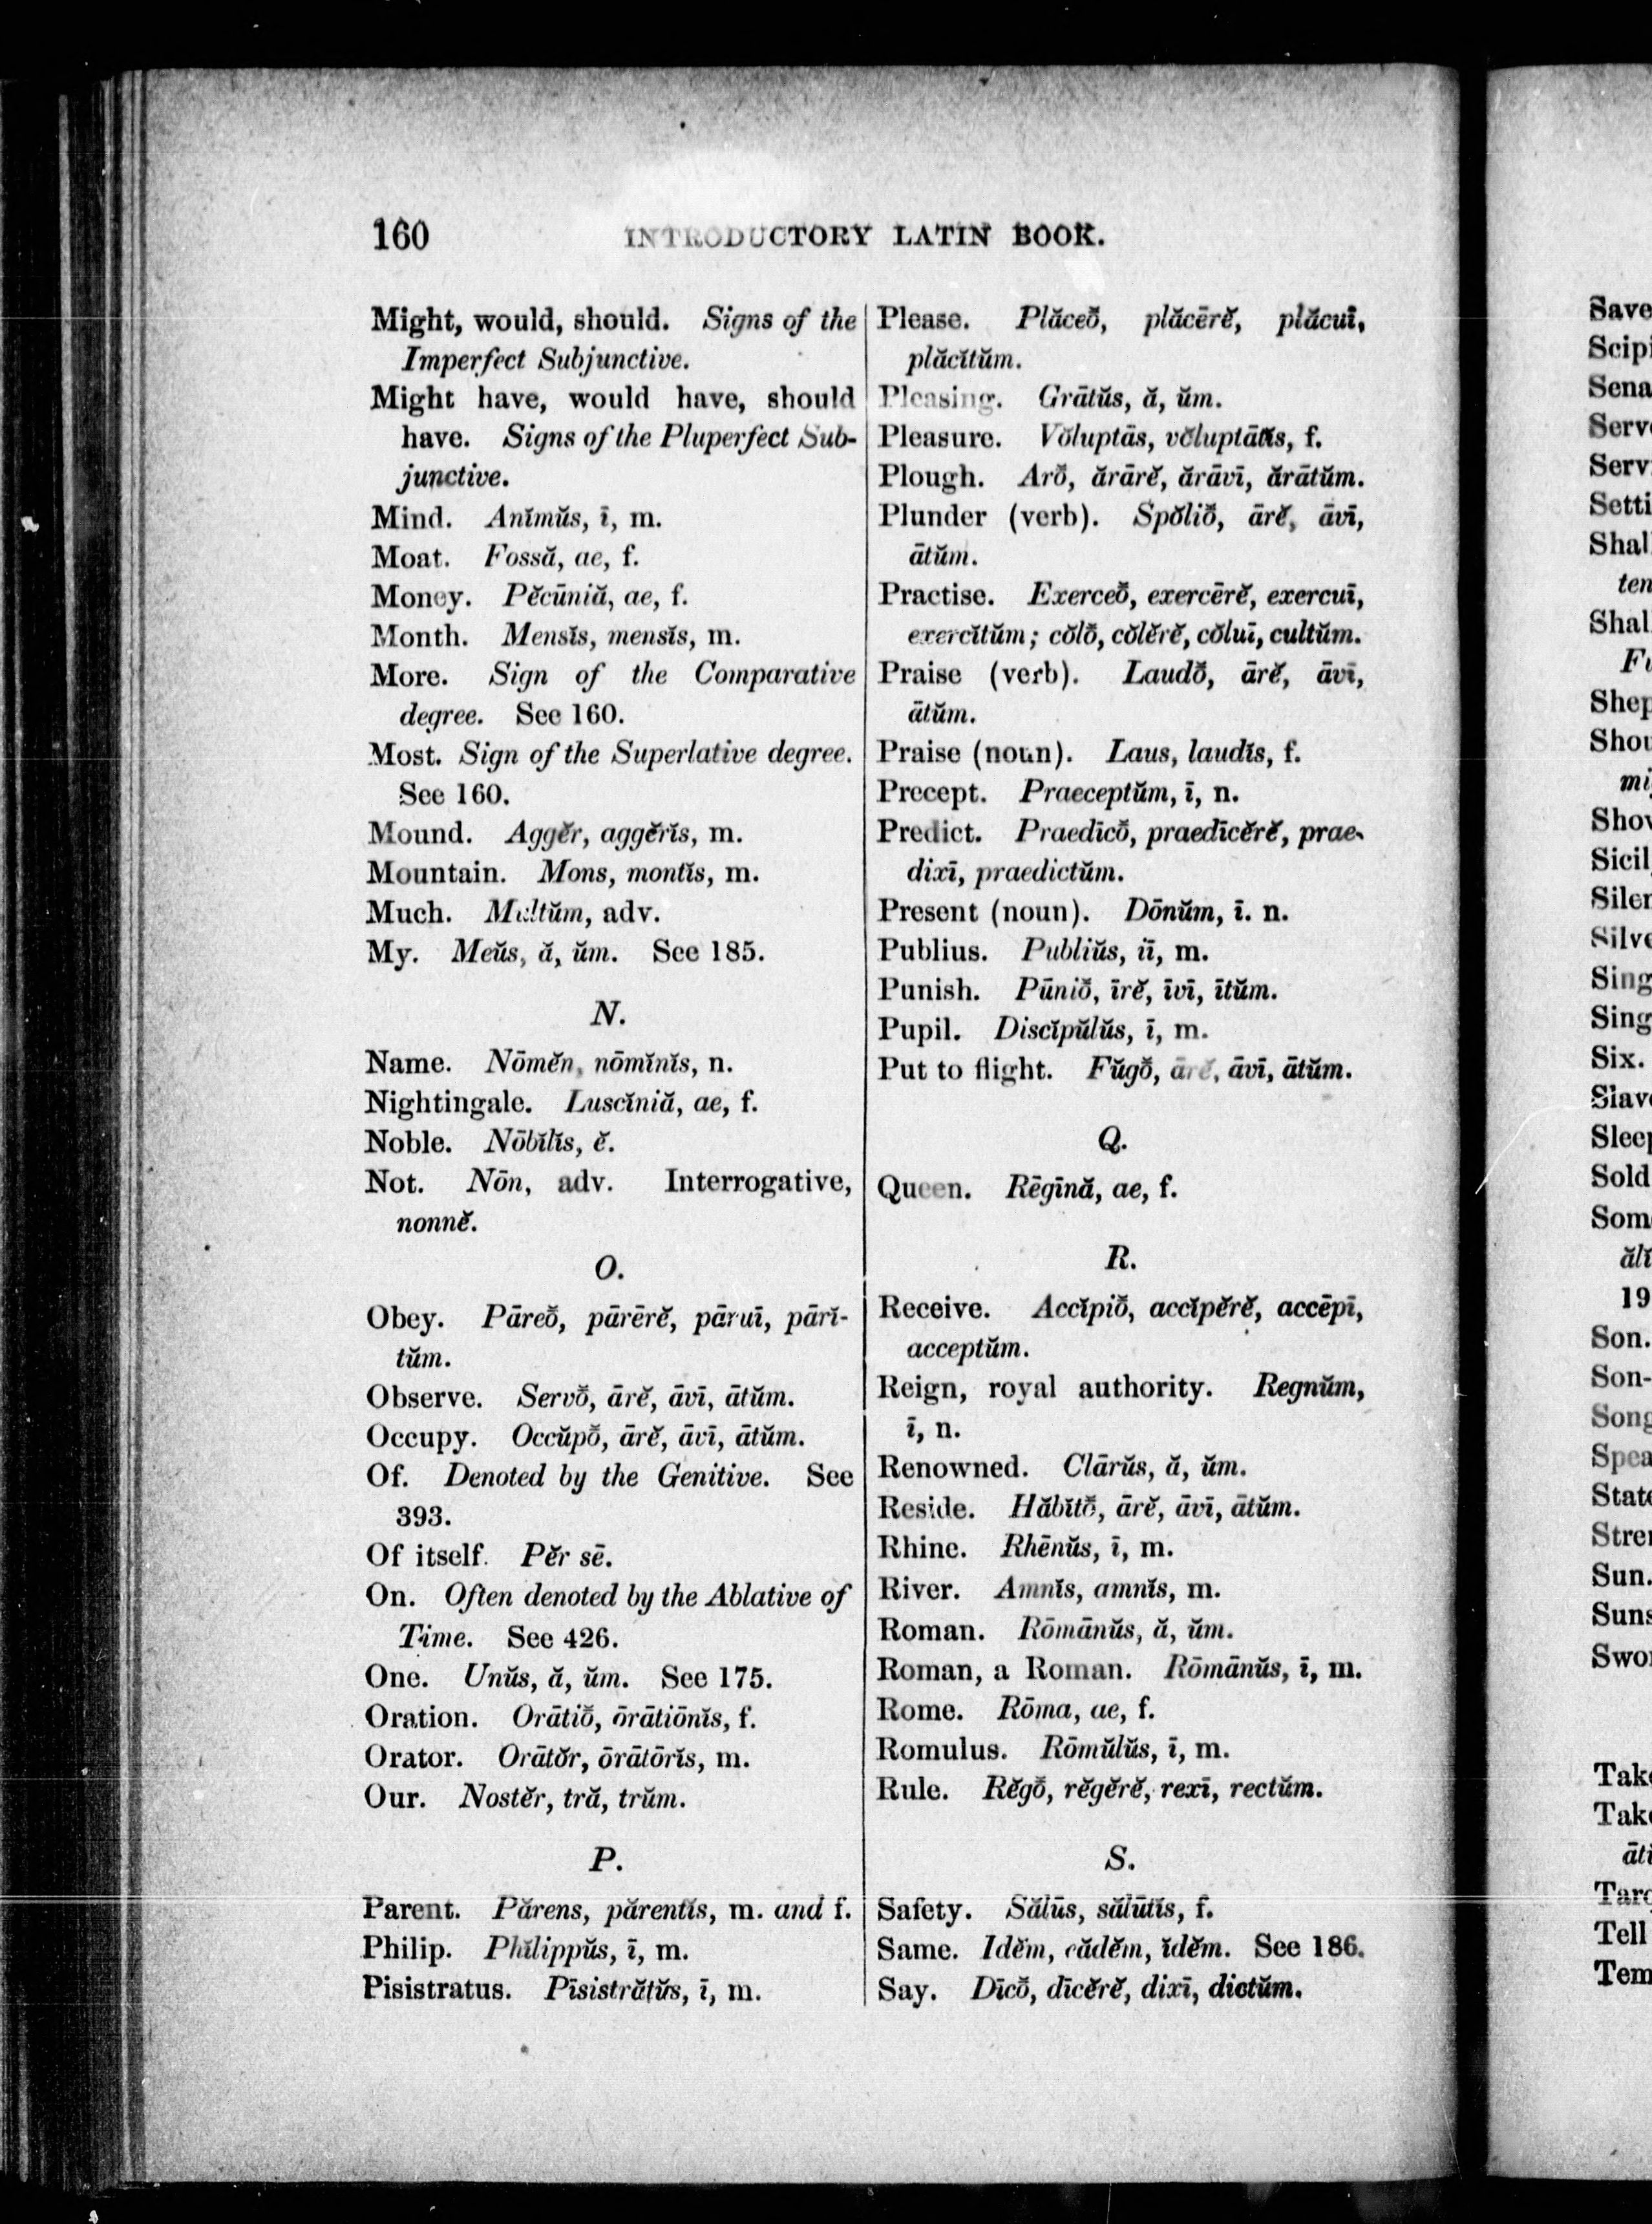 160 INTRODUCTORY LATIN BOOK.
Might, would, should. Signs of the
Imperfect Subjunctive.
Might have, would have, should
have. Signs of the Pluperfect Sub-
junctive.
Mind. Anĭmŭs, ī, m.
Moat. Fossă, ae, f.
Money. Pĕcūniă, ae, f.
Month. Mensĭs, mensĭs, m.
More. Sign of the Comparative
degree. See 160.
Most. Sign of the Superlative degree.
See 160.
Mound. Aggĕr, aggĕrĭs, m.
Mountain. Mons, montĭs, m.
Much. Multŭm, adv.
My. Meŭs, ă, ŭm. See 185.
N.
Name. Nōmĕn, nōmĭnĭs, n.
Nightingale. Luscĭniă, ae, f.
Noble. Nōbĭlĭs, ĕ.
Not. Nōn, adv. Interrogative,
nonnĕ.
O.
Obey. Pāreō̆, pārērĕ, pāruī, pārĭ-
tŭm.
Observe. Servō̆, ārĕ, āvī, ātŭm.
Occupy. Occŭpō̆, ārĕ, āvī, ātŭm.
Of. Denoted by the Genitive. See
393.
Of itself. Pĕr sē.
On. Often denoted by the Ablative of
Time. See 426.
One. Unŭs, ă, ŭm. See 175.
Oration. Orātiō̆, ōrātiōnĭs, f.
Orator. Orātŏr, ōrātōrĭs, m.
Our. Nostĕr, tră, trŭm.
P.
Parent. Părens, părentĭs, m. and f.
Philip. Phĭlippŭs, ī, m.
Pisistratus. Pīsistrătŭs, ī, m.
Please. Plăceō̆, plăcērĕ, plăcuī,
plăcĭtŭm.
Pleasing. Grātŭs, ă, ŭm.
Pleasure. Vŏluptās, vŏluptātĭs, f.
Plough. Arō̆, ărārĕ, ărāvī, ărātŭm.
Plunder (verb). Spŏliō̆, ārĕ, āvī,
ātŭm.
Practise. Exerceō̆, exercērĕ, exercuī,
exercĭtŭm; cŏlō̆, cŏlĕrĕ, cŏluī, cultŭm.
Praise (verb). Laudō̆, ārĕ, āvī,
ātŭm.
Praise (noun). Laus, laudĭs, f.
Precept. Praeceptŭm, ī, n.
Predict. Praedīcō̆, praedīcĕrĕ, prae-
dixī, praedictŭm.
Present (noun). Dōnŭm, ī. n.
Publius. Publiŭs, iī, m.
Punish. Pūniō̆, īrĕ, īvī, ītŭm.
Pupil. Discĭpŭlŭs, ī, m.
Put to flight. Fŭgō̆, ārĕ, āvī, ātŭm.
Q.
Queen. Rēgīnă, ae, f.
R.
Receive. Accĭpiō̆, accĭpĕrĕ, accēpī,
acceptŭm.
Reign, royal authority. Regnŭm,
ī, n.
Renowned. Clārŭs, ă, ŭm.
Reside. Hăbĭtō̆, ārĕ, āvī, ātŭm.
Rhine. Rhēnŭs, ī, m.
River. Amnĭs, amnĭs, m.
Roman. Rōmānŭs, ă, ŭm.
Roman, a Roman. Rōmānŭs, ī, m.
Rome. Rōma, ae, f.
Romulus. Rōmŭlŭs, ī, m.
Rule. Rĕgō̆, rĕgĕrĕ, rexī, rectŭm.
S.
Safety. Sălūs, sălūtĭs, f.
Same. Idĕm, eădĕm, ĭdĕm. See 186.
Say. Dīcō̆, dīcĕrĕ, dixī, dictŭm.
Save
Scipi
Sena
Serv
Serv
Setti
Shal
ten
Shal
Fu
Shep
Shou
mi
Shov
Sicil
Siler
Silve
Sing
Sing
Six.
Slav
Slee
Sold
Som
ălĭ
19
Son.
Son-
Song
Spea
State
Stre
Sun.
Suns
Swor
Take
Take
āt
Tarq
Tell
Tem